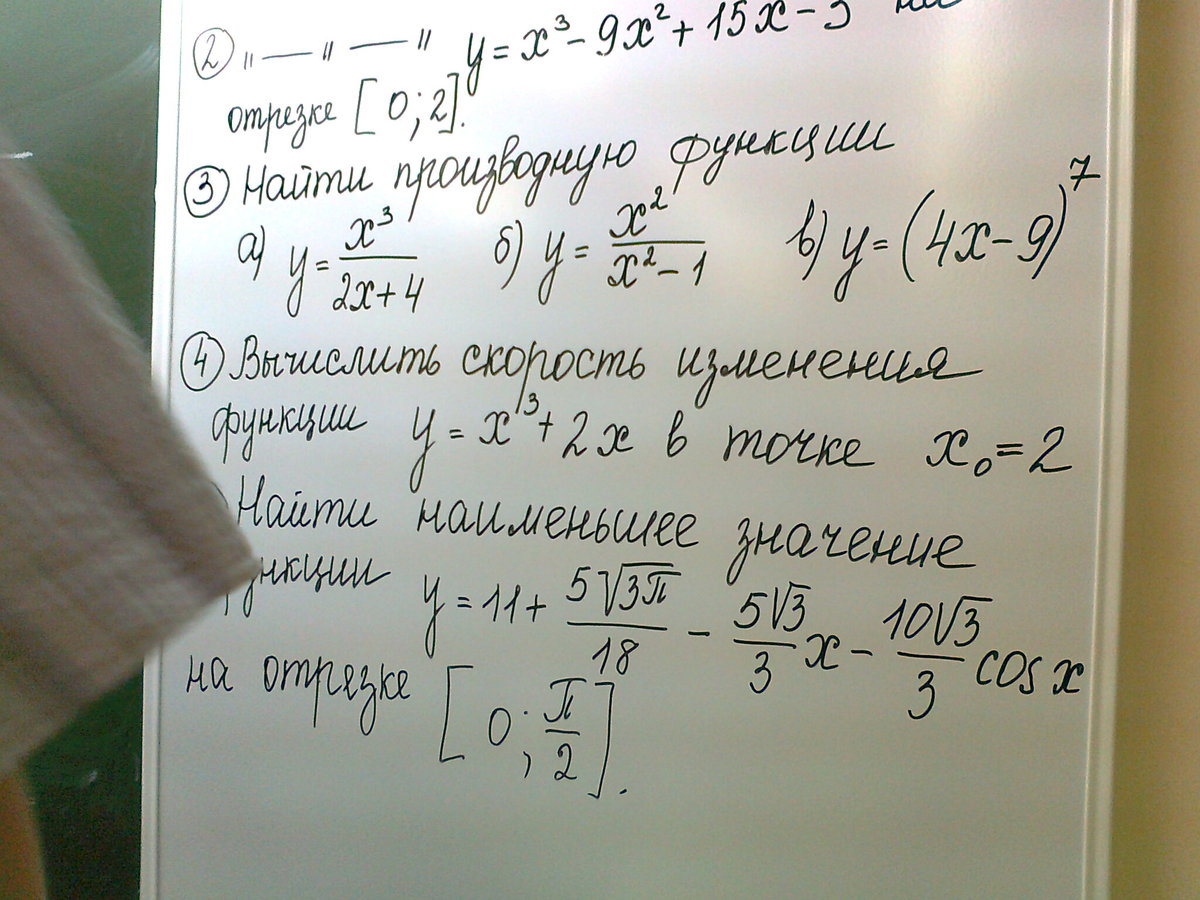 ② "—"—" y = x³ - 9x² + 15x - 3
отрезке [0; 2].
③ Найти производную функции
а) y = x³/(2x+4) б) y = x²/(x²-1) в) y = (4x-9)⁷
④ Вычислить скорость изменения
функции y = x³ + 2x в точке x₀ = 2
Найти наименьшее значение
нкции y = 11 + 5√3π/18 - 5√3/3 x - 10√3/3 cos x
на отрезке [0; π/2].